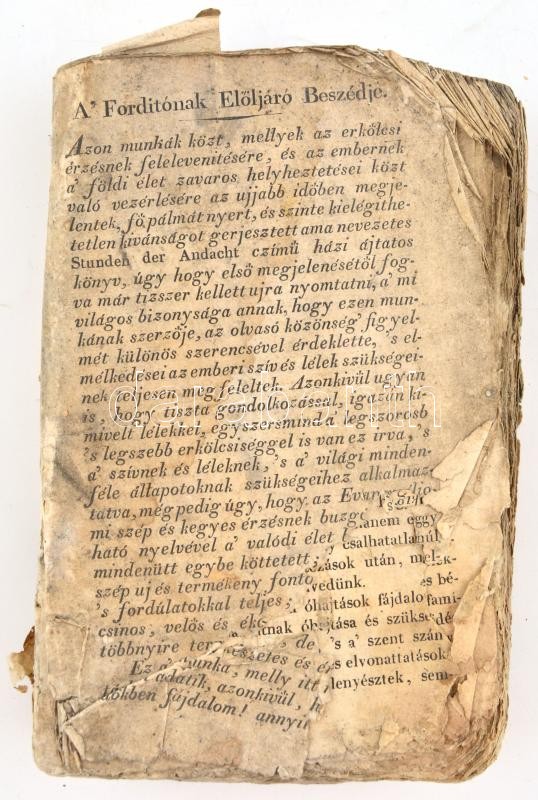 A' Forditónak Előljáró Beszédje.
Azon munkák közt, mellyek az erkölcsi
érzésnek felelevenitésére, és az embernek
a' földi élet zavaros helyheztetései közt
való vezérlésére az ujjabb időben megje-
lentek, fő pálmát nyert, és szinte kielégithe-
tetlen kivánságot gerjesztett ama nevezetes
Stunden der Andacht czímű házi ájtatos
könyv, úgy hogy első megjelenésétől fog-
va már tizszer kellett ujra nyomtatni, a' mi
világos bizonysága annak, hogy ezen mun-
kának szerzője, az olvasó közönség' figyel-
mét különös szerencsével érdeklette, 's el-
mélkedései az emberi szív és lélek szükségei-
nek teljesen megfeleltek. Azonkivül ugyan
is, hogy tiszta gondolkozással, igazán ki-
mivelt lélekkel, egyszersmind a' legszorosb
's legszebb erkölcsiséggel is van ez irva, 's
a' szívnek és léleknek, 's a' világi minden-
féle állapotoknak szükségeihez alkalmaz-
tatva, még pedig úgy, hogy az
mi szép és kegyes érzésnek hanem egy
ható nyelvével a' valódi élet csalhatatlanul
mindenütt egybe köttetett után,
szép uj és termékeny vedünk. és bé-
's fordúlatokkal teljes, óhajtások fájdalo
csinos, velős és óhajtása és szüksé
többnyire és 's a' szent szán
Ez a' munka, melly itt elvonattatások
adatik, azonkivül, lenyésztek, sem-
fájdalom! annyi